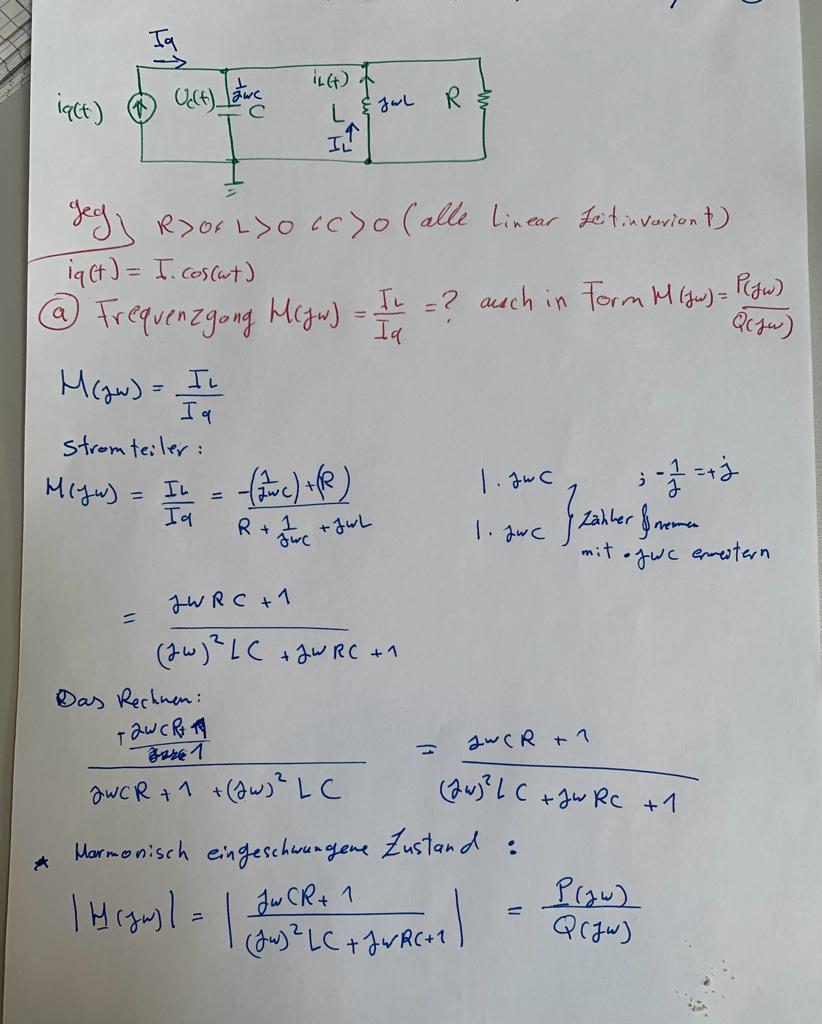 Iq
iq(t)
Uc(t)
1/jwC
C
iL(t)
L
jwL
IL
R
geg
R>0, L>0, C>0 (alle Linear Zeitinvariant)
iq(t) = I.cos(wt)
a Frequenzgang H(jw) = IL/Iq = ? auch in Form H(jw) = P(jw)/Q(jw)
H(jw) = IL/Iq
Stromteiler:
H(jw) = IL/Iq = -(1/jwC)+(R) / R + 1/jwC + jwL
|. jwC ; -1/j = +j
|. jwC } Zähler & nennen
mit • jwC erweitern
= jwRC + 1 / (jw)² LC + jwRC + 1
Das Rechnen:
jwCR + 1 / 1
jwCR + 1 + (jw)² LC = jwCR + 1 / (jw)² LC + jwRC + 1
* Harmonisch eingeschwungene Zustand :
|H(jw)| = | jwCR + 1 / (jw)² LC + jwRC + 1 | = P(jw)/Q(jw)